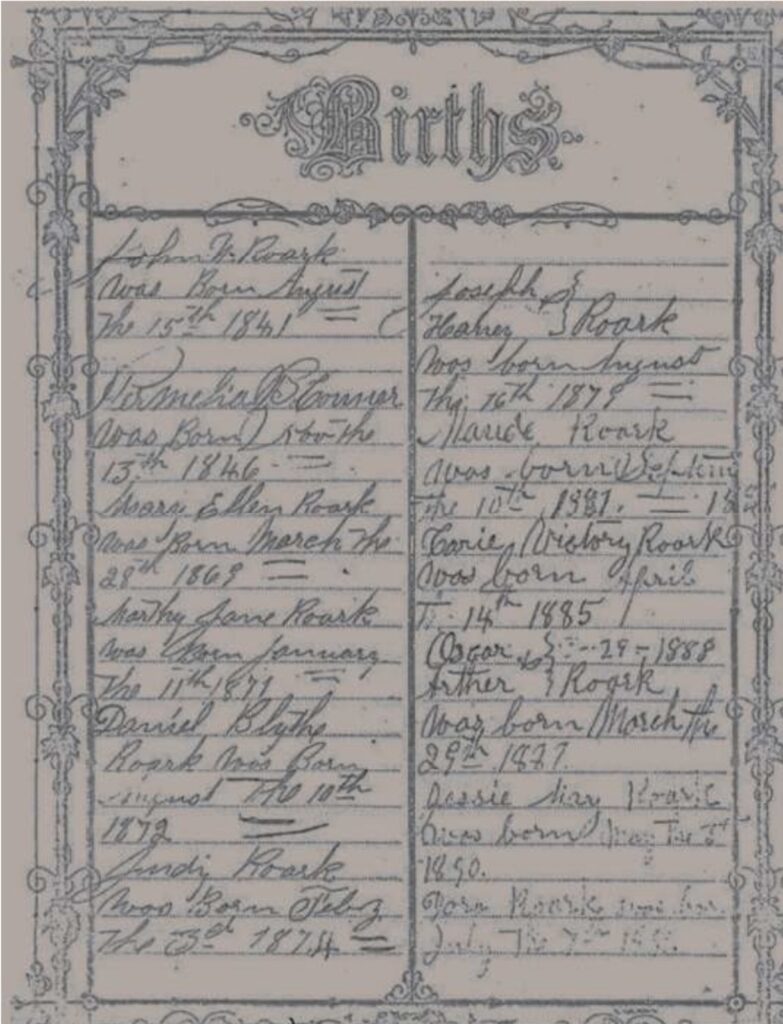 Births
John W. Roark
was Born August
the 15th 1841
was Born Nov the
15th 1846
Mary Ellen Roark
was Born March the
28th 1869
Marthy Jane Roark
was Born January
the 11th 1871
Daniel Blythe
Roark was Born
August The 10th
1872
Judy Roark
was Born Feb
the 3rd 1874
Joseph &
Harvey } Roark
was born August
the 16th 1879
Maude Roark
was born Septem
the 10th 1881.
Victory Roark
was born April
14th 1885
Oscar & 29 - 1888
Arther } Roark
was born March the
29th
Roark
was born May The
1890.
Dora Roark was
July The 7th